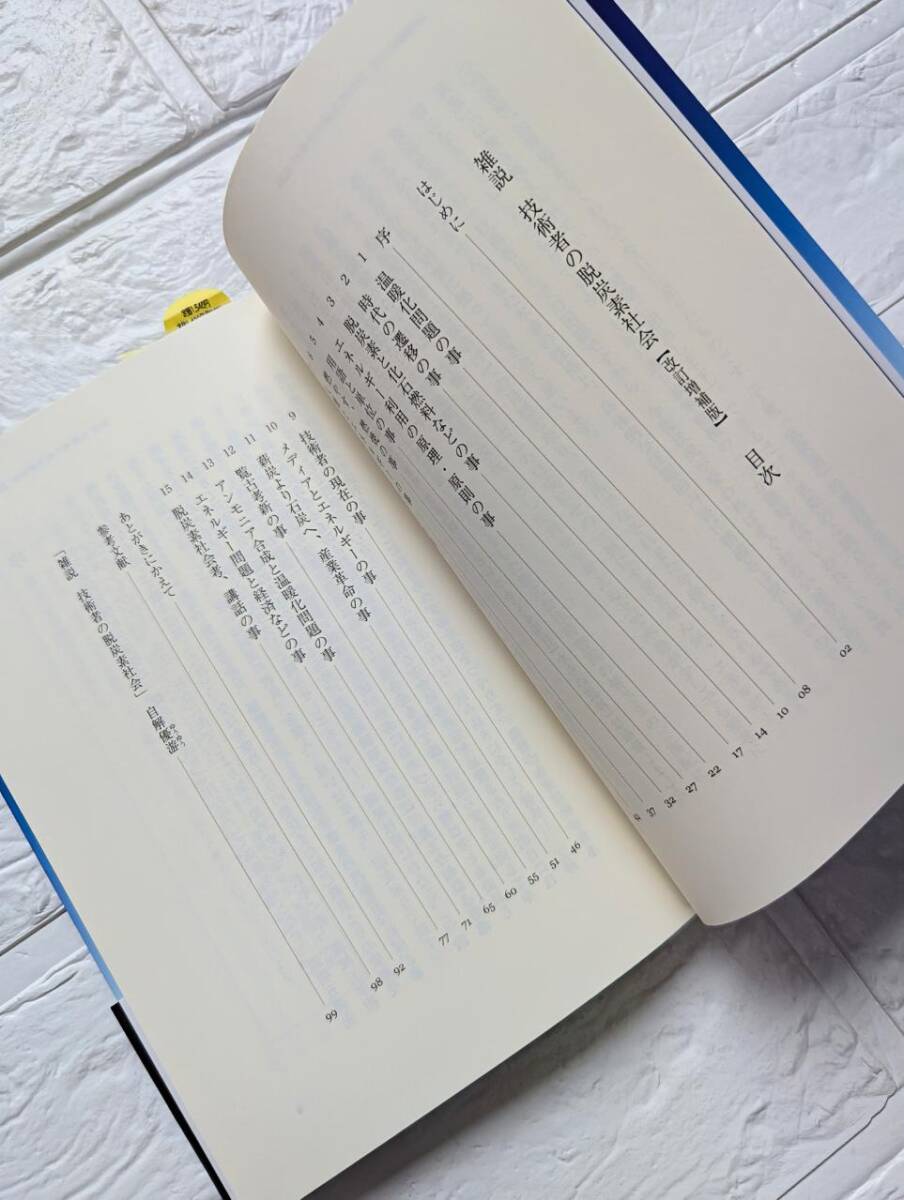 雑説 技術者の脱炭素社会【改訂増補版】 目次
はじめに 02
序 08
1 温暖化問題の事 10
2 時代の遷移の事 14
3 脱炭素と化石燃料などの事 17
4 エネルギー利用の原理・原則の事 22
5 用語と単位の事 27
32
37
9 技術者の現在の事 46
10 メディアとエネルギーの事 51
11 薪炭より石炭へ、産業革命の事 55
12 覧古考新の事 60
13 アンモニア合成と温暖化問題の事 65
14 エネルギー問題と経済などの事 71
15 脱炭素社会考、講話の事 77
あとがきにかえて 92
参考文献 98
「雑説 技術者の脱炭素社会」自解優游 99
ゆうゆう